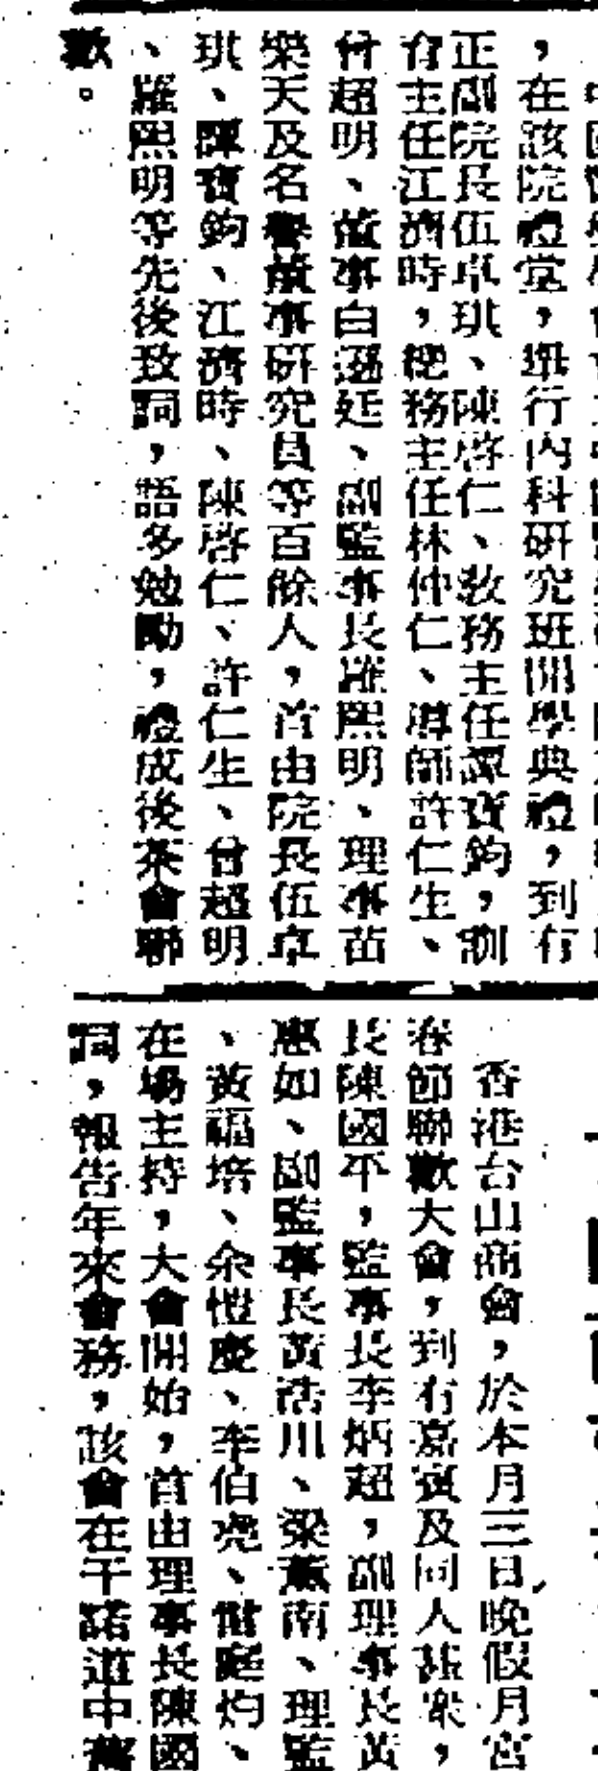 ，在該院禮堂，舉行內科研究班開學典禮，到有
正副院長伍卓琪、陳啓仁、敎務主任譚寶鈞，訓
育主任江濟時，總務主任林仲仁、導師許仁生、
曾超明、董事白遜廷、副監事長羅熙明、理事苗
樂天及名譽董事硏究員等百餘人，首由院長伍卓
琪、譚寶鈞、江濟時、陳啓仁、許仁生、曾超明
、羅熙明等先後致詞，語多勉勵，禮成後茶會聯
歡。
香港台山商會，於本月三日晚假月宮
春節聯歡大會，到有嘉賓及同人甚衆，
長陳國平，監事長李炳超，副理事長黃
惠如、副監事長黃浩川、梁薰南、理監
、黃福培、余愷慶、李伯堯、庭灼、
在場主持，大會開始，首由理事長陳國
詞，報告年來會務，該會在干諾道中舊